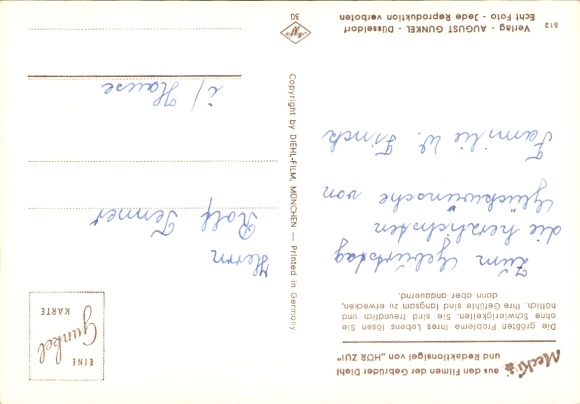 Mecki
aus den Filmen der Gebrüder Diehl
und Redaktionsigel von „HÖR ZU!"
Die größten Probleme Ihres Lebens lösen Sie
ohne Schwierigkeiten. Sie sind freundlich und
höflich. Ihre Gefühle sind langsam zu erwecken,
dann aber andauernd.
Zum Geburtstag
die herzlichsten
Glückwünsche von
Familie W. Finck
512
Verlag - AUGUST GUNKEL - Düsseldorf
Echt Foto - Jede Reproduktion verboten
Copyright by DIEHL-FILM, MÜNCHEN — Printed in Germany
EINE
Gunkel
KARTE
Herrn
Rolf Tenner
i/ Hause
Agfa
50